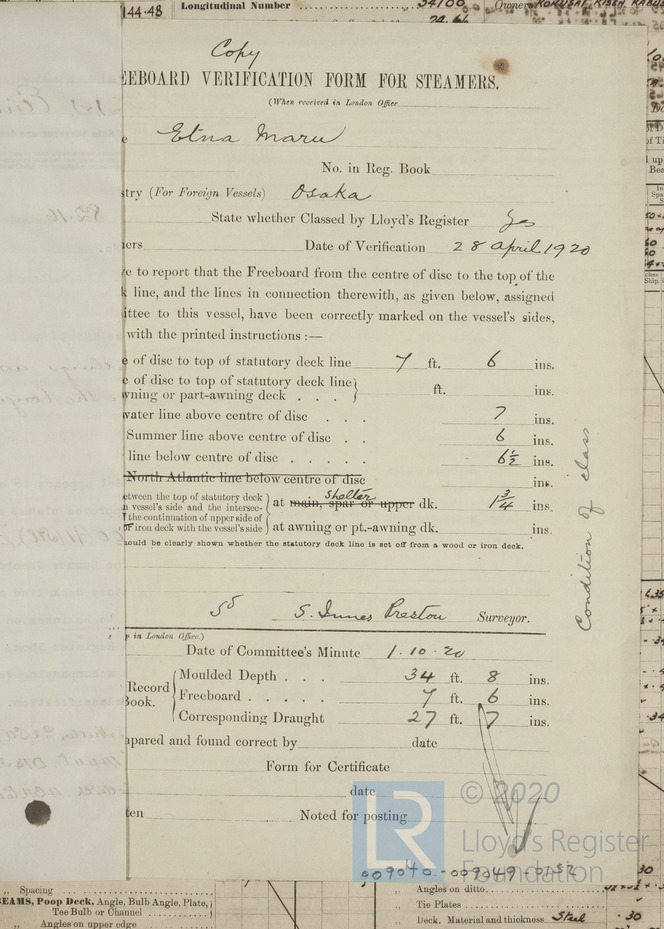 144-48 Longitudinal Number 34100 Owner
Copy
EEBOARD VERIFICATION FORM FOR STEAMERS.
(When received in London Office
e Etna Maru
No. in Reg. Book
stry (For Foreign Vessels) Osaka
State whether Classed by Lloyd's Register Yes
ners Date of Verification 28 April. 1920
e to report that the Freeboard from the centre of disc to the top of the
k line, and the lines in connection therewith, as given below, assigned
ittee to this vessel, have been correctly marked on the vessel's sides,
with the printed instructions :—
e of disc to top of statutory deck line 7 ft. 6 ins.
e of disc to top of statutory deck line
wning or part-awning deck . . . ft. ins.
water line above centre of disc . . . 7 ins.
Summer line above centre of disc . . 6 ins.
line below centre of disc . . . . . 6½ ins.
North Atlantic line below centre of disc ins.
etween the top of statutory deck
n vessel's side and the intersec-
the continuation of upper side of
or iron deck with the vessel's side
shelter
at main, spar or upper dk. 1¾ ins.
at awning or pt.-awning dk. ins.
ould be clearly shown whether the statutory deck line is set off from a wood or iron deck.
Condition of class
S. Innes Preston Surveyor.
p in London Office.)
Date of Committee's Minute 1.10.20
Record
Book.
Moulded Depth . . . 34 ft. 8 ins.
Freeboard . . . . . 7 ft. 6 ins.
Corresponding Draught 27 ft. 7 ins.
mpared and found correct by date
Form for Certificate
date
ten Noted for posting
LR
© 2020
Lloyd's Register
Foundation
009040-009049-0152
„ Spacing
BEAMS, Poop Deck, Angle, Bulb Angle, Plate,
Tee Bulb or Channel
„ Angles on upper edge
„ Angles on ditto
„ Tie Plates
„ Deck. Material and thickness Steel .30